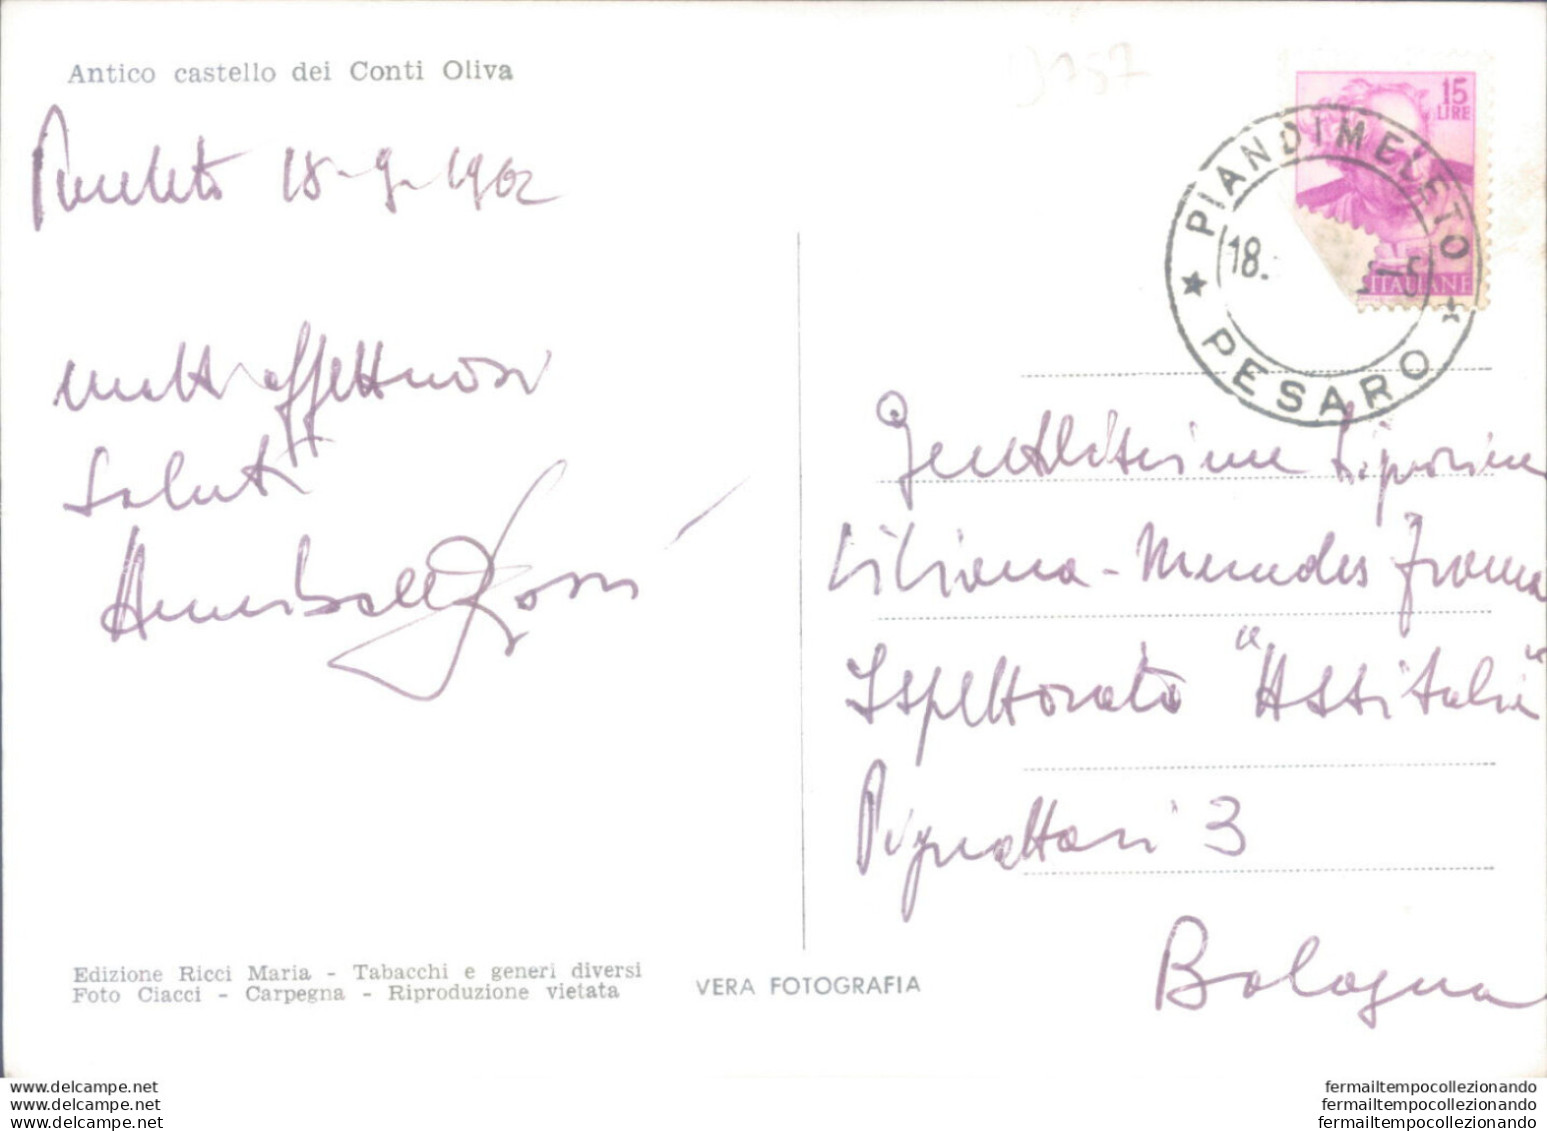 Antico castello dei Conti Oliva
9757
18-9-1962
molti affettuosi
saluti
Annibale Rossi
15
LIRE
ITALIANE
PIANDIMELETO
18.
PESARO
Gentilissima Signorina
Liliana - Mendes
Ispettorato "Assitalia"
Pignattari 3
Bologna
Edizione Ricci Maria - Tabacchi e generi diversi
Foto Ciacci - Carpegna - Riproduzione vietata
VERA FOTOGRAFIA
www.delcampe.net
www.delcampe.net
www.delcampe.net
fermailtempocollezionando
fermailtempocollezionando
fermailtempocollezionando